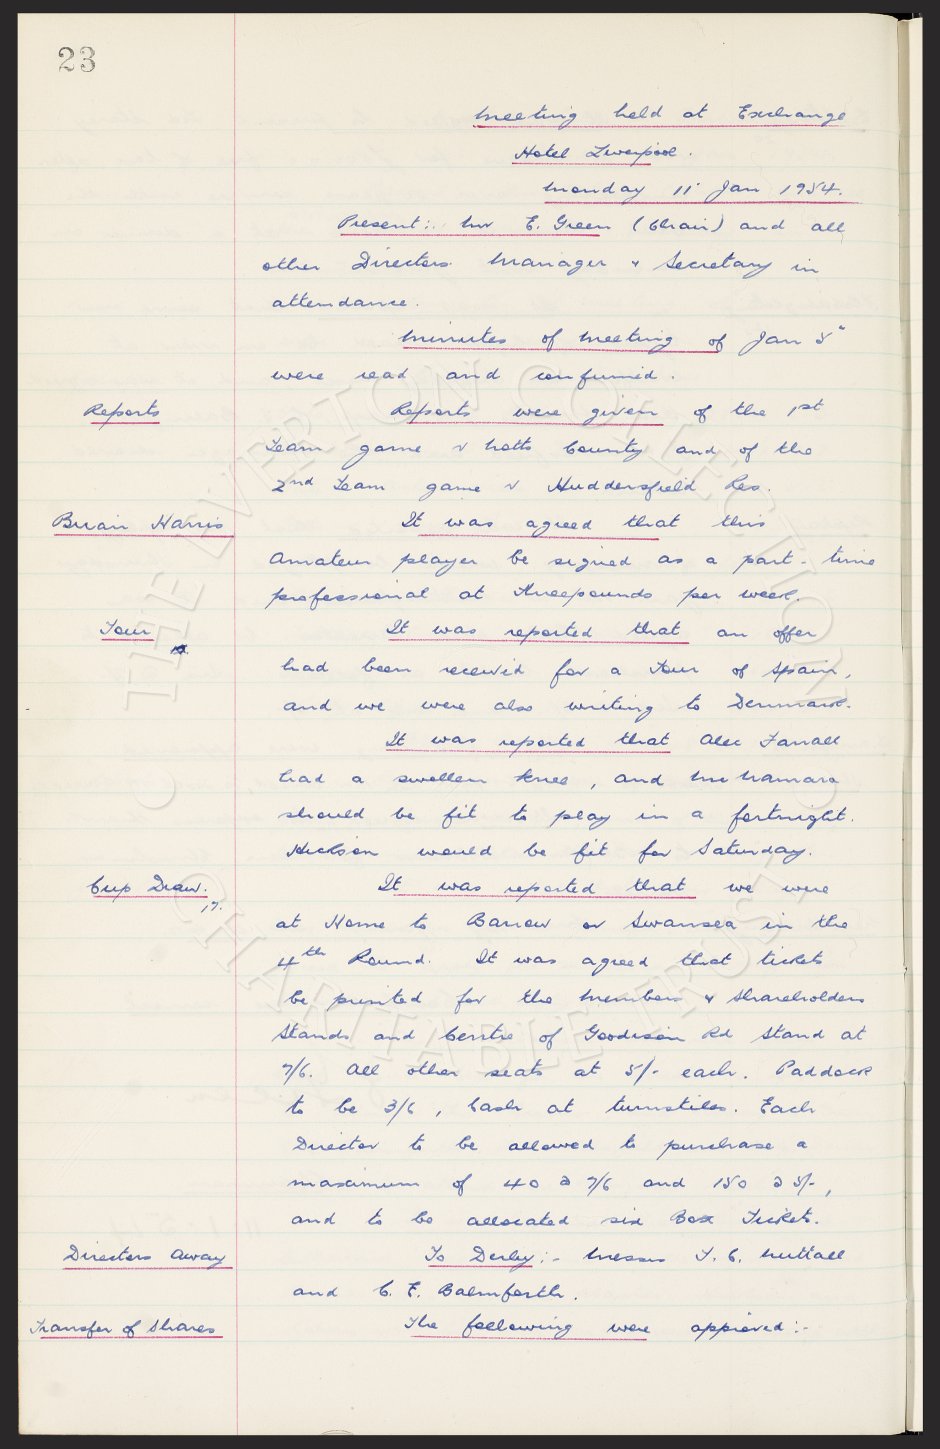 23
Meeting held at Exchange
Hotel Liverpool.
Monday 11" Jan 1954.
Present:- Mr E. Green (Chair) and all
other Directors. Manager & Secretary in
attendance.
Minutes of Meeting of Jan 5"
were read and confirmed.
Reports Reports were given of the 1st
Team game v Notts County and of the
2nd Team game v Huddersfield Res.
Brian Harris It was agreed that this
Amateur player be signed as a part-time
professional at threepounds per week.
Tour It was reported that an offer
had been received for a tour of Spain,
and we were also writing to Denmark.
It was reported that Alec Farrall
had a swollen knee, and McNamara
should be fit to play in a fortnight.
Hickson would be fit for Saturday.
Cup Draw. It was reported that we were
at Home to Barrow or Swansea in the
4th Round. It was agreed that tickets
be printed for the Members & Shareholders
Stands and Centre of Goodison Rd Stand at
7/6. All other seats at 5/- each. Paddock
to be 3/6, Cash at turnstiles. Each
Director to be allowed to purchase a
maximum of 40 @ 7/6 and 150 @ 5/-,
and to be allocated six Box Tickets.
Directors Away To Derby:- Messrs T. C. Nuttall
and C. E. Balmforth.
Transfer of Shares The following were approved:-
© THE EVERTON COLLECTION
CHARITABLE TRUST